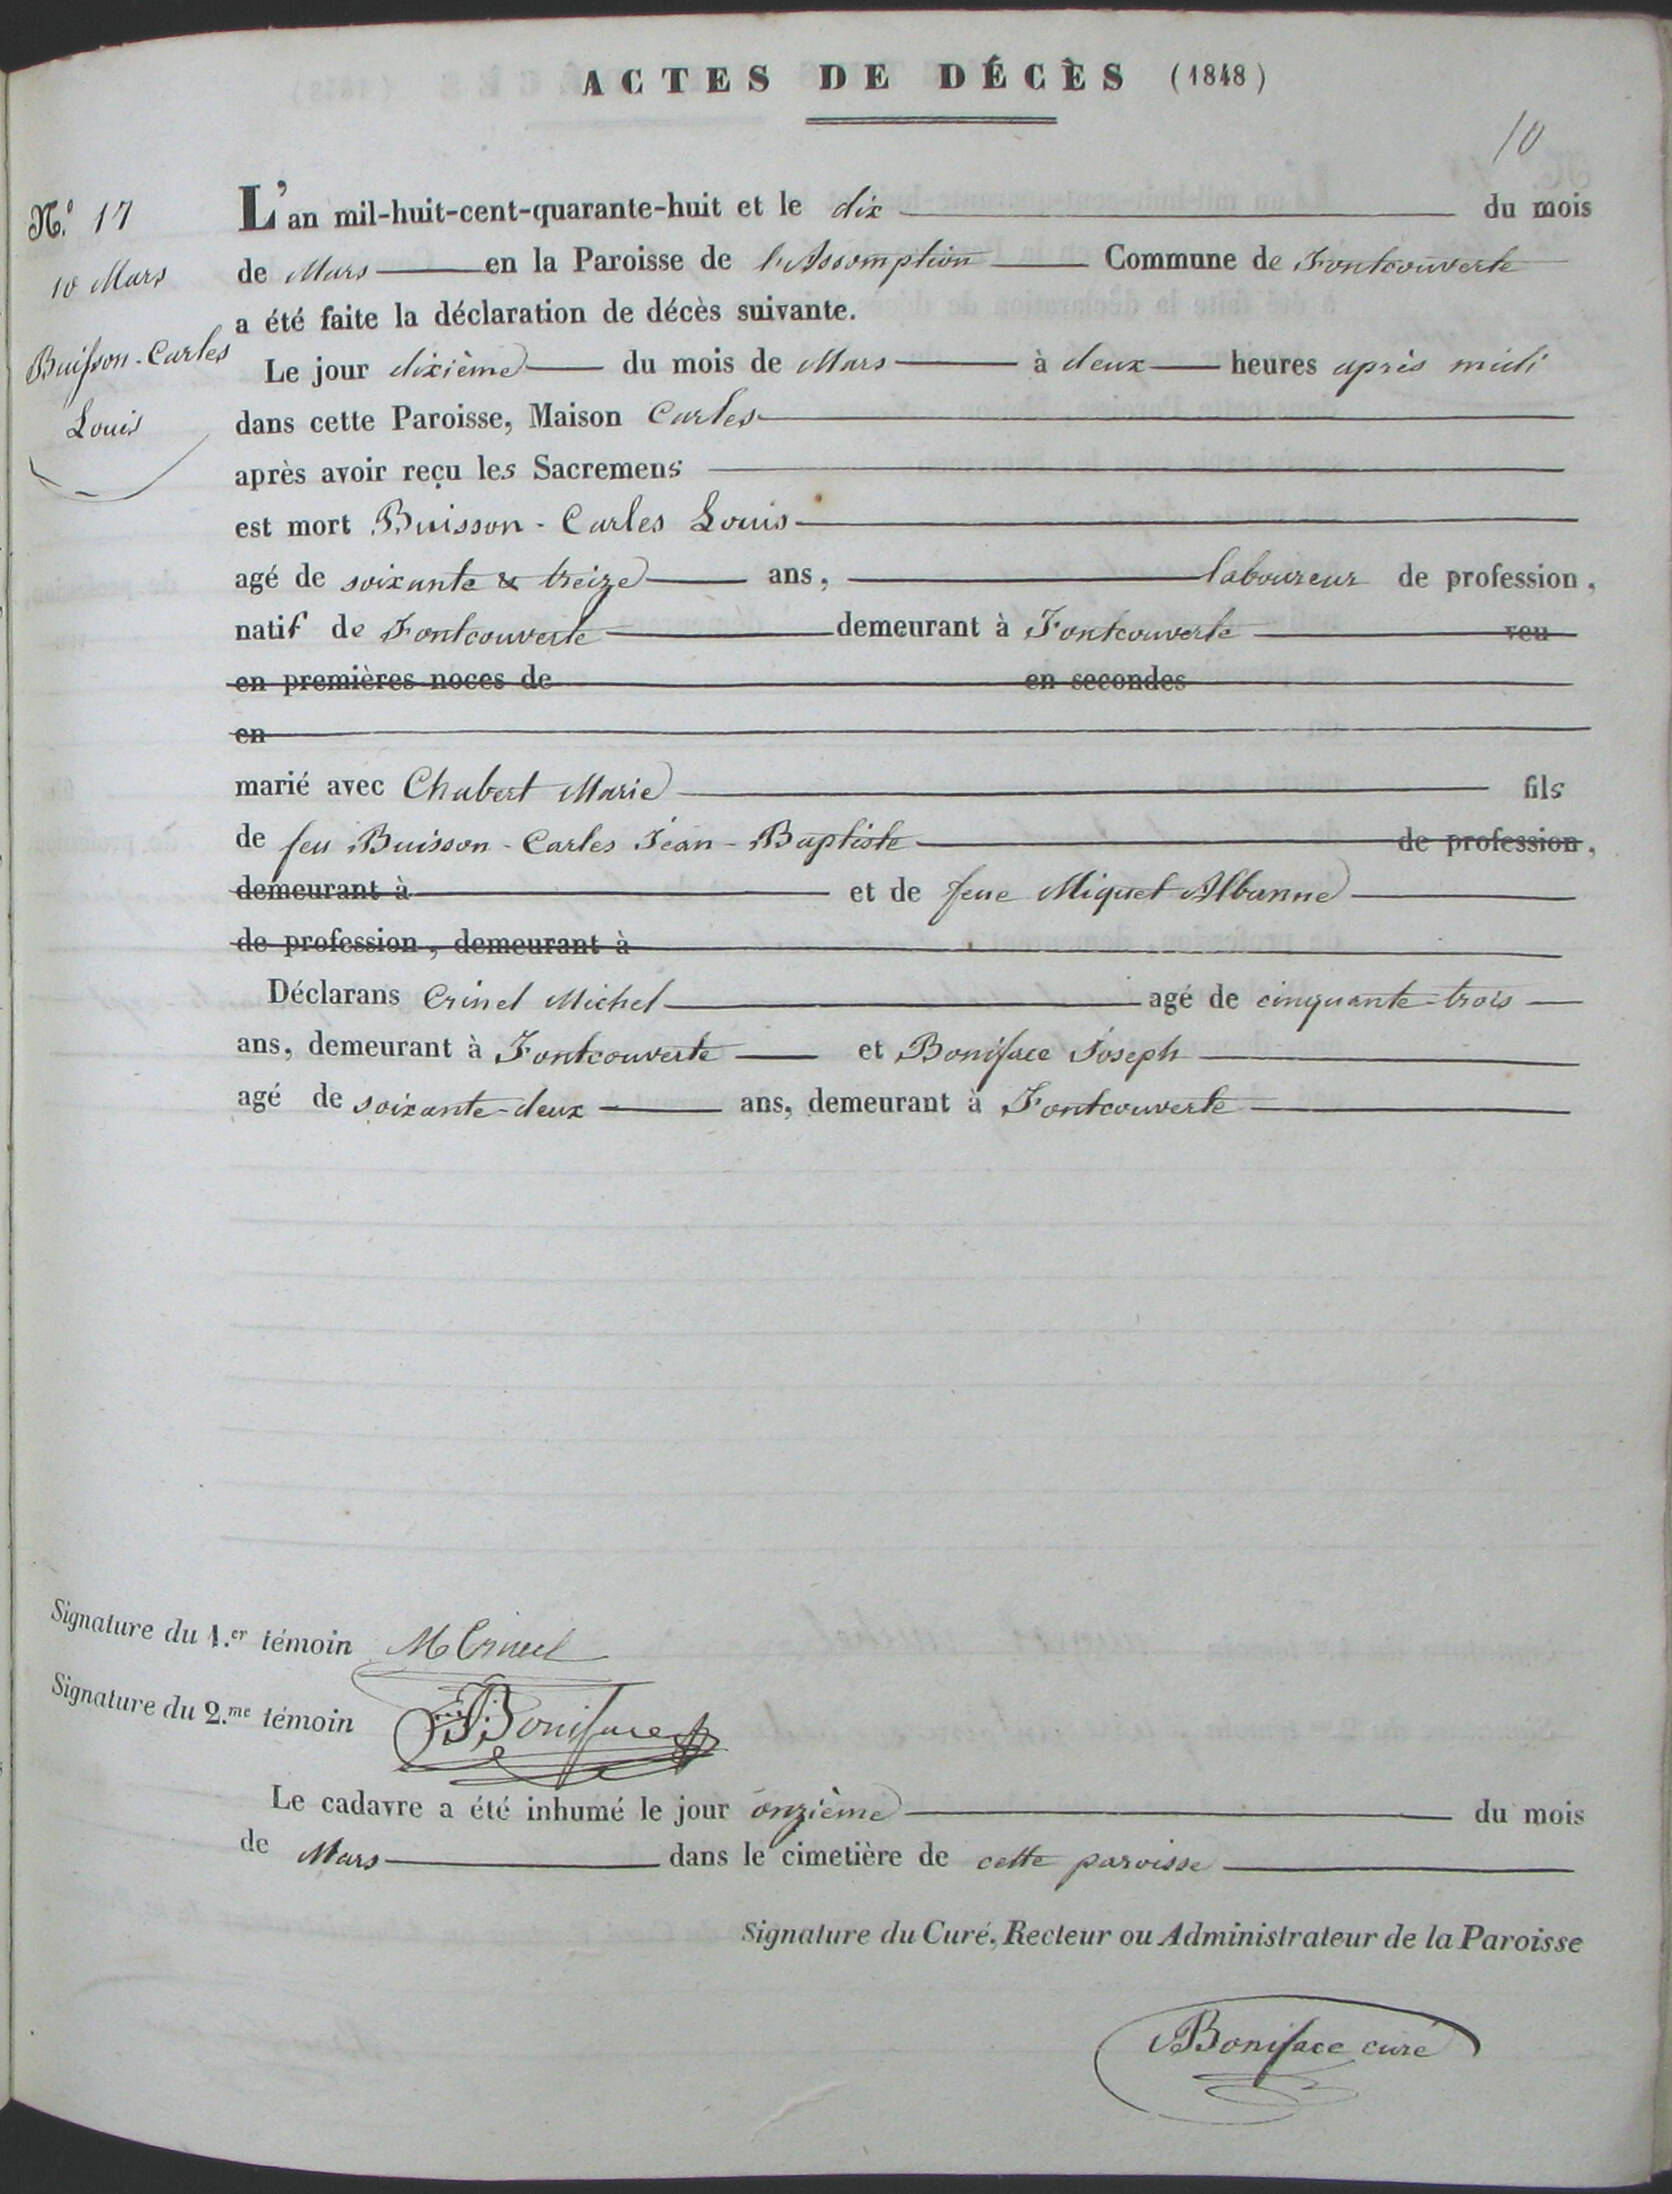 ACTES DE DÉCÈS (1848)
10
N.º 17
10 Mars
Buisson-Carles
Louis
L'an mil-huit-cent-quarante-huit et le dix du mois
de Mars en la Paroisse de l'Assomption Commune de Fontcouverte
a été faite la déclaration de décès suivante.
Le jour dixième du mois de Mars à deux heures après midi
dans cette Paroisse, Maison Carles
après avoir reçu les Sacremens
est mort Buisson-Carles Louis
agé de soixante & treize ans, laboureur de profession,
natif de Fontcouverte demeurant à Fontcouverte veu
en premières noces de en secondes
en
marié avec Chabert Marie fils
de feu Buisson-Carles Jean-Baptiste de profession,
demeurant à et de feue Miquet Albanne
de profession, demeurant à
Déclarans Crinel Michel agé de cinquante-trois
ans, demeurant à Fontcouverte et Boniface Joseph
agé de soixante-deux ans, demeurant à Fontcouverte
Signature du 1.er témoin M Crinel
Signature du 2.me témoin Boniface
Le cadavre a été inhumé le jour onzième du mois
de Mars dans le cimetière de cette paroisse
Signature du Curé, Recteur ou Administrateur de la Paroisse
Boniface curé